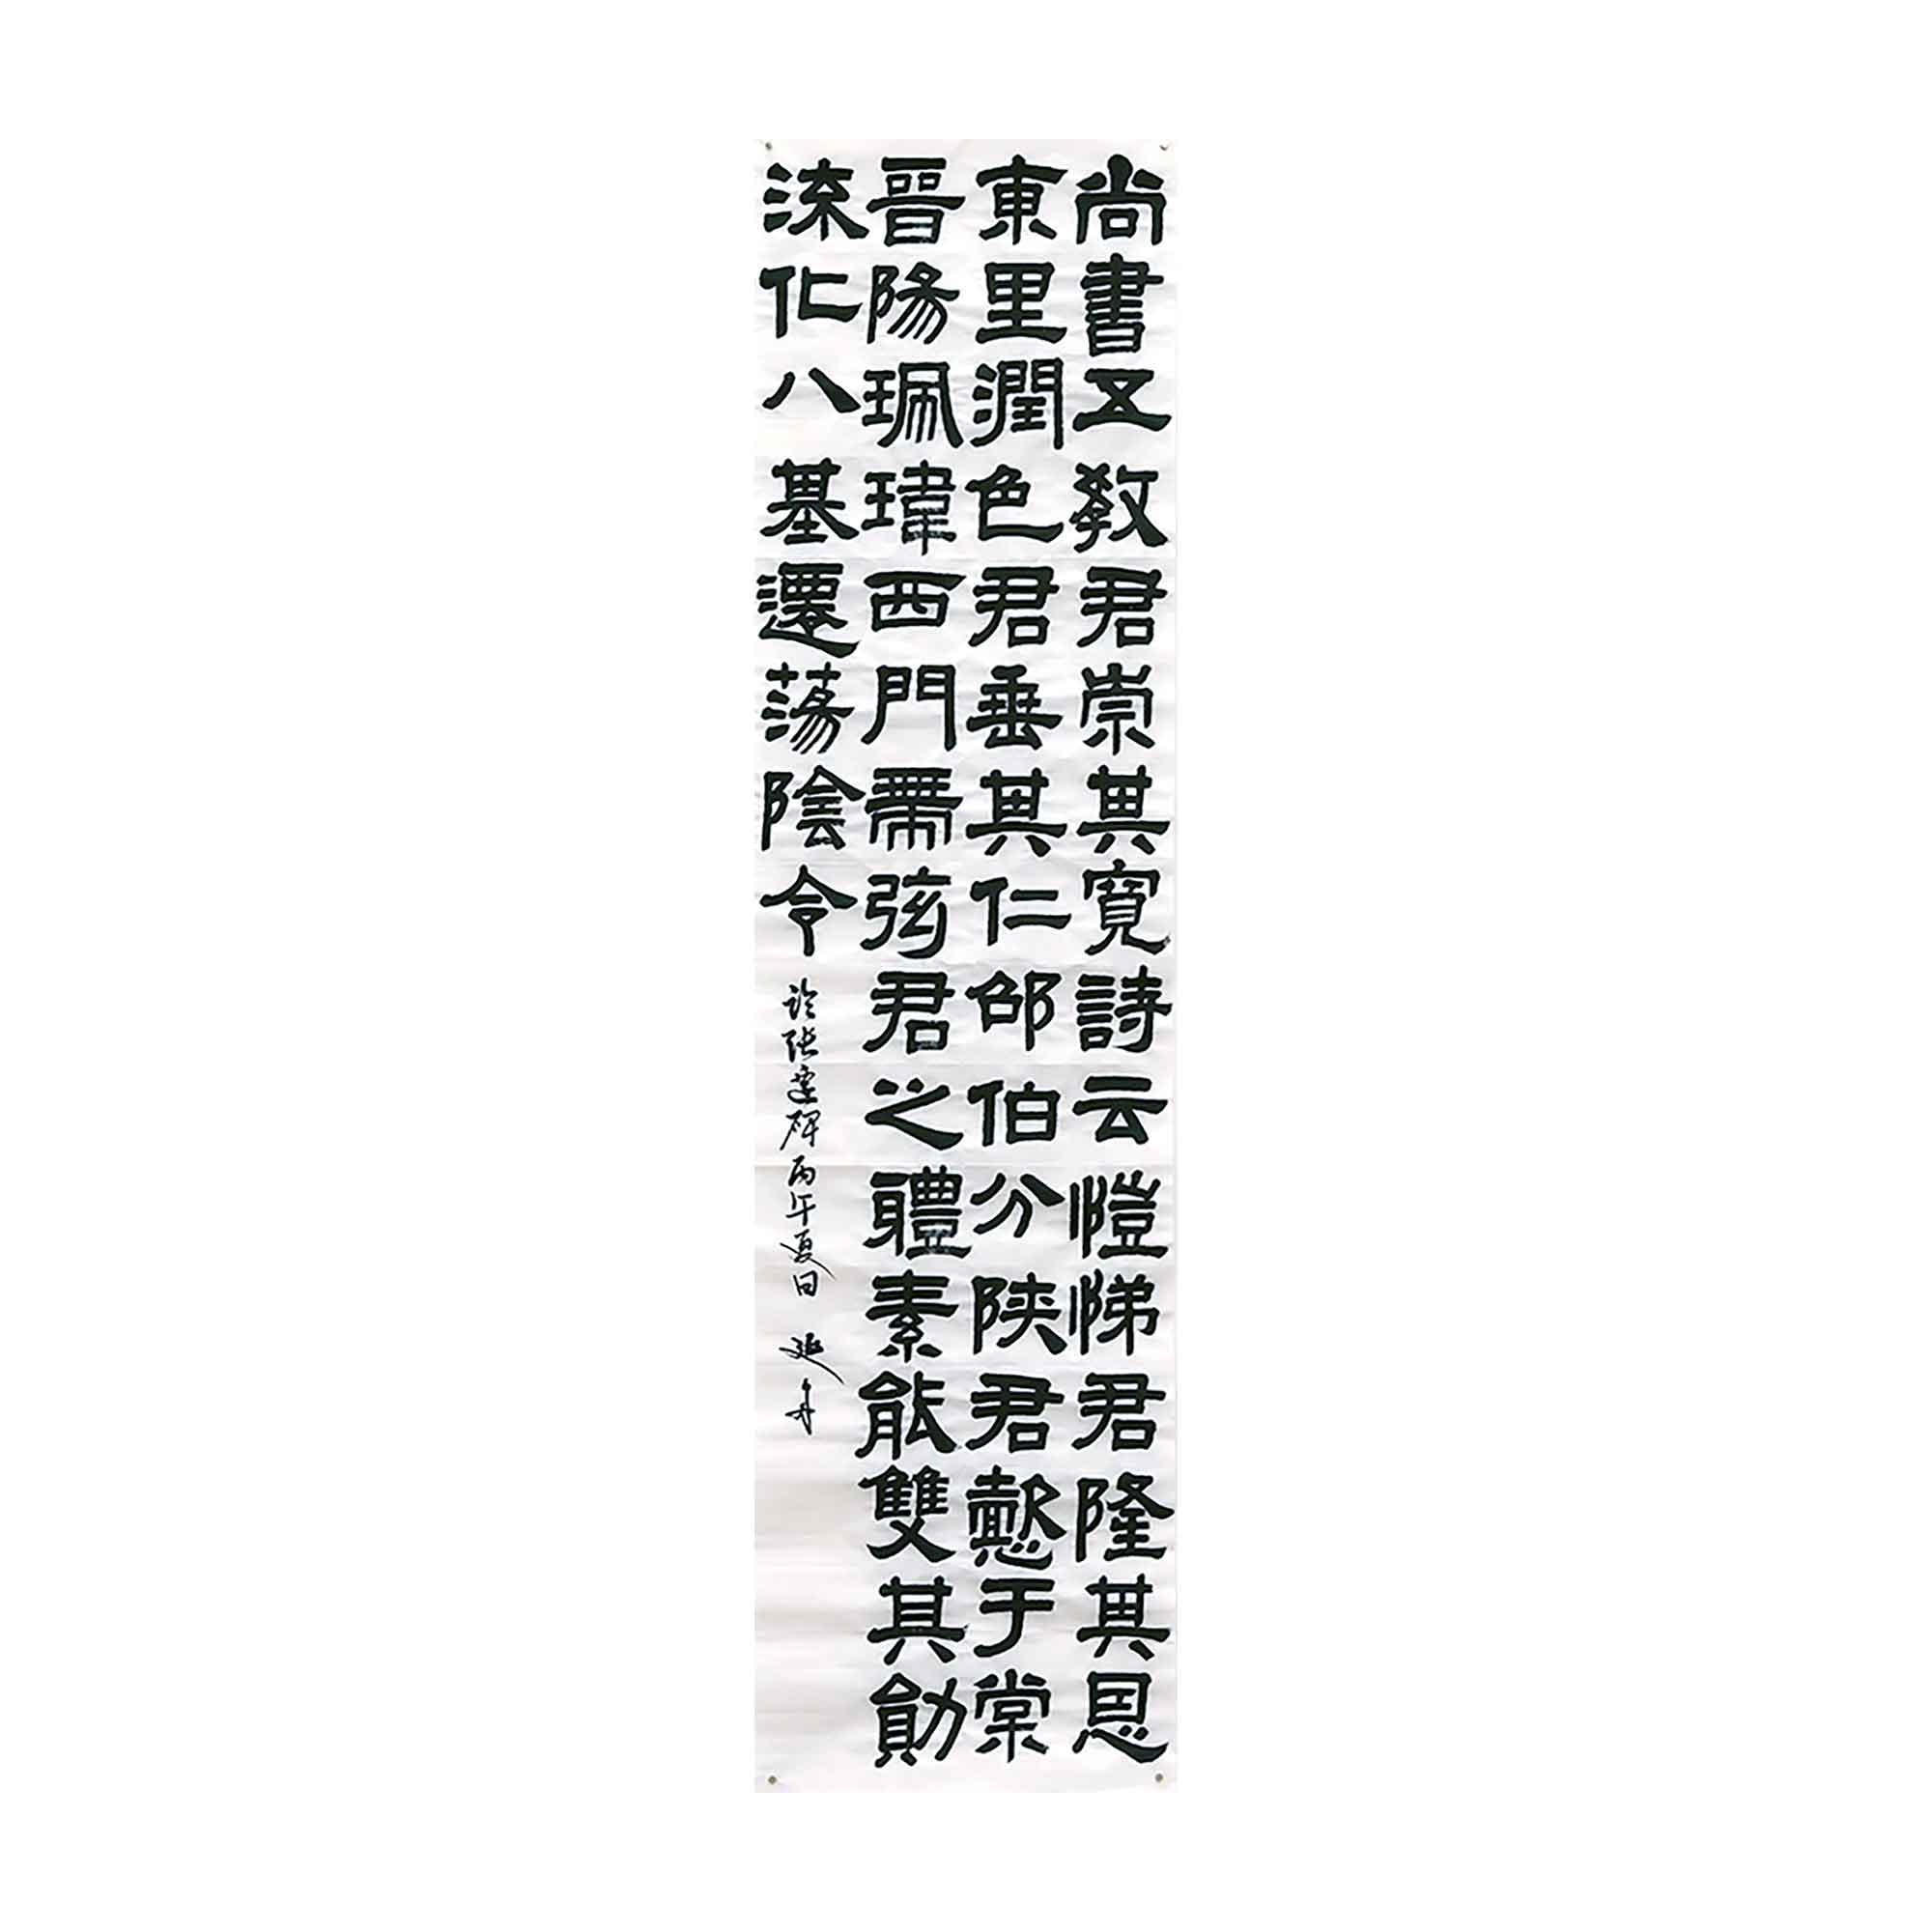 尚書五教君崇其寬詩云愷悌君隆其恩
東里潤色君垂其仁邵伯分陝君懿于棠
晉陽珮瑋西門帶弦君之體素能雙其勛
流化八基遷蕩陰令
臨張遷碑丙午夏日